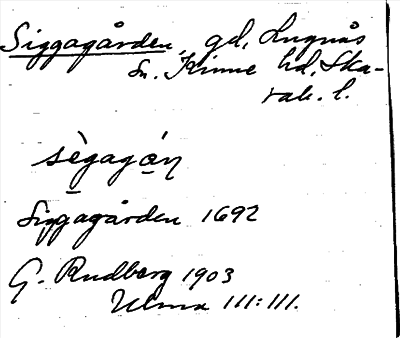 Siggagården, gd, Lugnås
Sn. Kinne hd, Ska-
rab. l.
sègagán
Siggagården 1692
G. Rudberg 1903
Ulma 111:111.